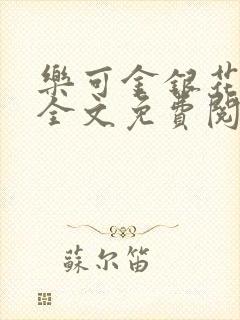 樂可金銀花
全文免費閱
蘇尔笛